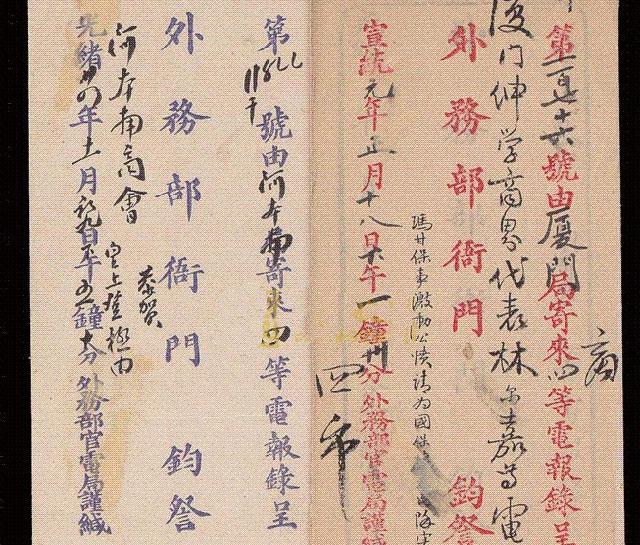 第一百七十六號由厦門局寄來四等電報錄呈
商
厦门伸学商界代表林尔嘉等電
外務部衙門 鈞詧
瑪甘保事激動公憤請為國保
宣統元年正月十八日下午一鐘卅分外務部官電局謹緘
第 號由河本埔寄來四等電報錄呈
外務部衙門 鈞詧
恭賀
皇上登極由
河本埔商會
光緒卅四年十一月初九日下午五鐘十分外務部官電局謹緘